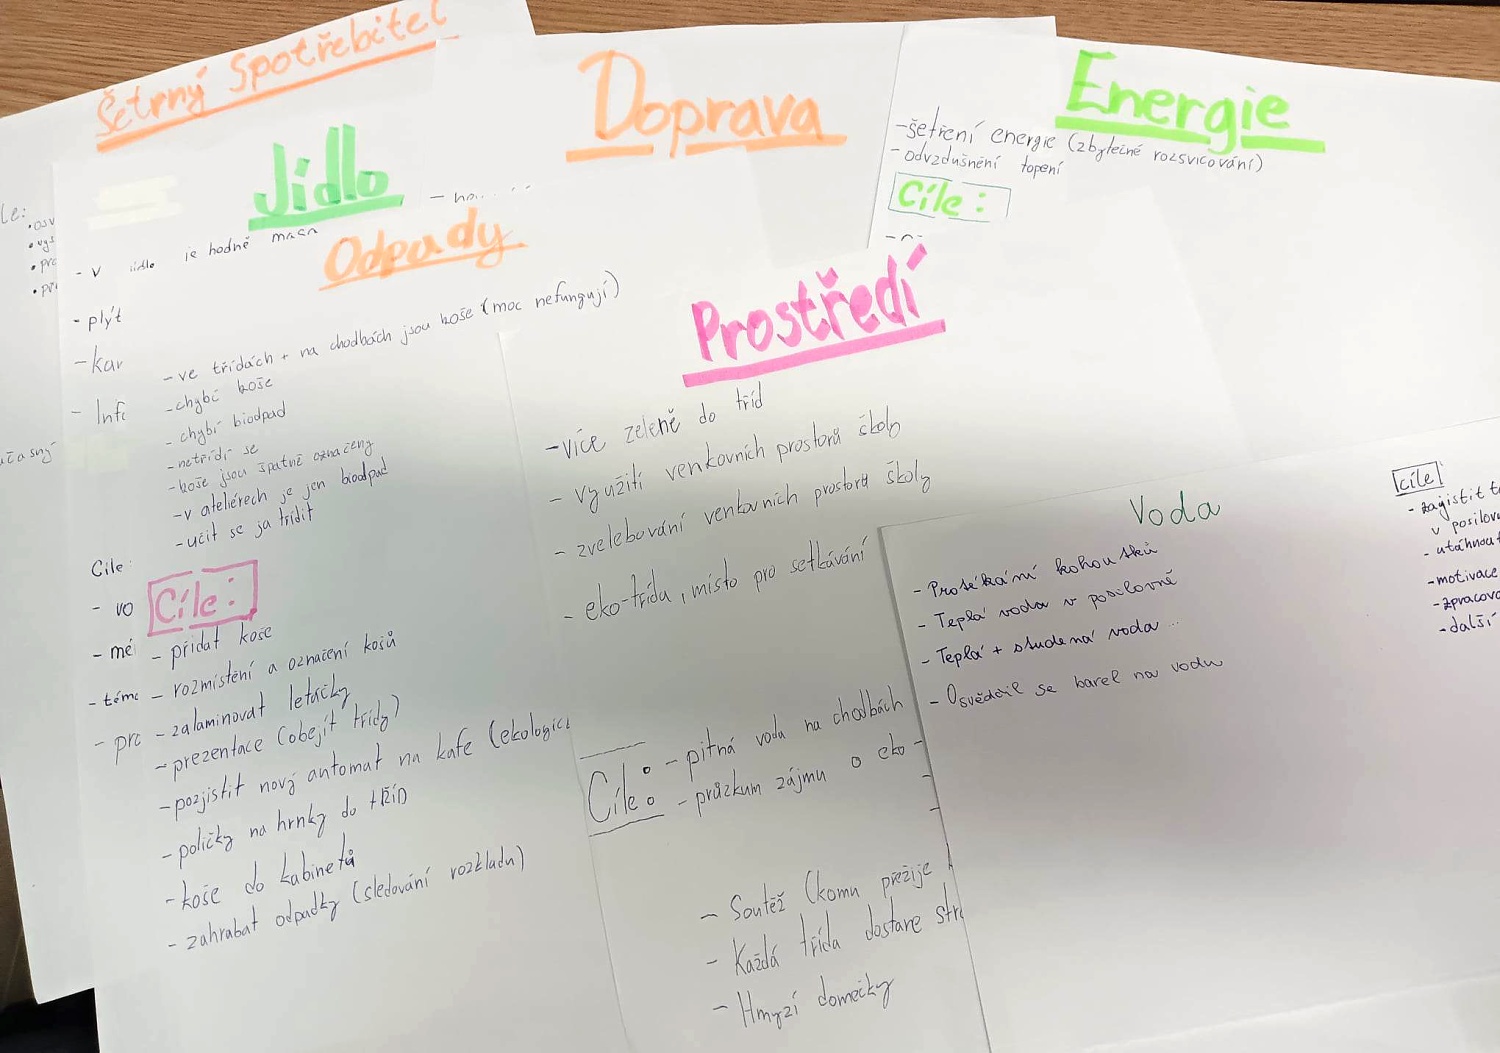 Šetrný Spotřebitel
Doprava
Energie
-šetření energie (zbytečné rozsvicování)
- odvzdušnění topení
Cíle:
Jídlo
- V jídle je hodně masa
- plýt
- kar
- Infi
Cíle:
- vo
- mé
- téma
- pro
Odpady
- ve třídách + na chodbách jsou koše (moc nefungují)
- chybí koše
- chybí bioodpad
- netřídí se
- koše jsou špatně označeny
- v ateliérech je jen bioodpad
- učit se ja třídit
Cíle:
- přidat koše
- rozmístění a označení košů
- zalaminovat letáčky
- prezentace (obejít třídy)
- pozjistit nový automat na kafe (ekologic
- poličky na hrnky do tříd
- koše do kabinetů
- zahrabat odpadky (sledování rozkladu)
Prostředí
- více zeleně do tříd
- využití venkovních prostorů školy
- zvelebování venkovních prostorů školy
- eko-třída, místo pro setkávání
Cíle:
- pitná voda na chodbách
- průzkum zájmu o eko -
- Soutěž (komu přežije
- Každá třída dostane
- Hmyzí domečky
Voda
- Prosékání kohoutků
- Teplá voda v posilovně
- Teplá + studená voda ...
- Osvědčil se barel na vodu
cíle
- zajistit
v posilov
- utáhnout
- motivace
- zpracova
- další